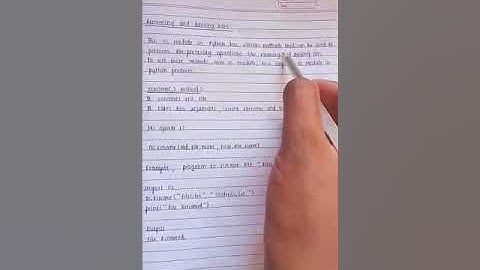 Renaming and deleting files
The os module in Python has various methods that can be used to
perform file processing operations like renaming and deleting files.
To use these methods, os module in
python program
rename() method
It renames the file
It takes two arguments, current filename and
Its syntax is
os.rename(old file name, new file name)
Example, program to rename the
import os
os.rename("file.txt", ".txt")
print("File Renamed")
Output
File Renamed